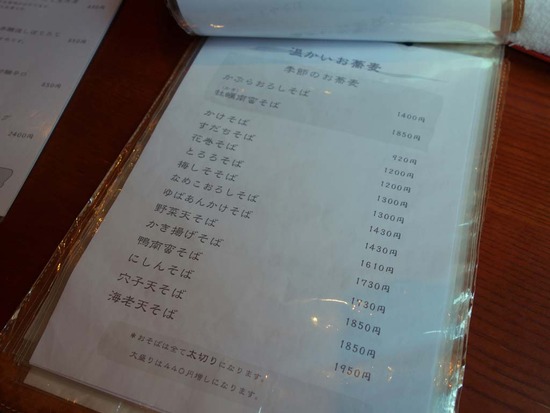 温かいお蕎麦
季節のお蕎麦
かぶらおろしそば 1400円
牡蠣南蛮そば 1850円
かけそば 920円
すだちそば 1200円
花巻そば 1200円
とろろそば 1300円
梅しそそば 1300円
なめこおろしそば 1430円
ゆばあんかけそば 1430円
野菜天そば 1610円
かき揚げそば 1730円
鴨南蛮そば 1730円
にしんそば 1850円
穴子天そば 1850円
海老天そば 1950円
*おそばは全て太切りになります。
大盛りは440円増しになります。
450円
850円
2400円